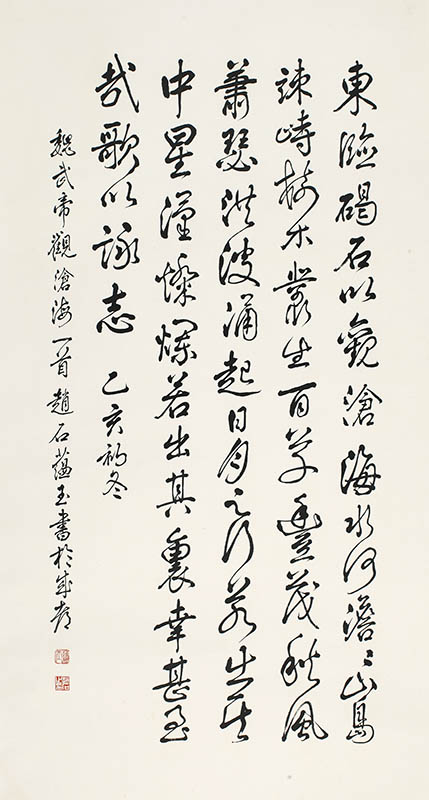 東臨碣石以觀滄海水何澹々山島
竦峙樹木叢生百草豐茂秋風
蕭瑟洪波涌起日月之行若出其
中星漢燦爛若出其裏幸甚至
哉歌以詠志 乙亥初冬
魏武帝觀滄海一首趙石蘊玉書於成都